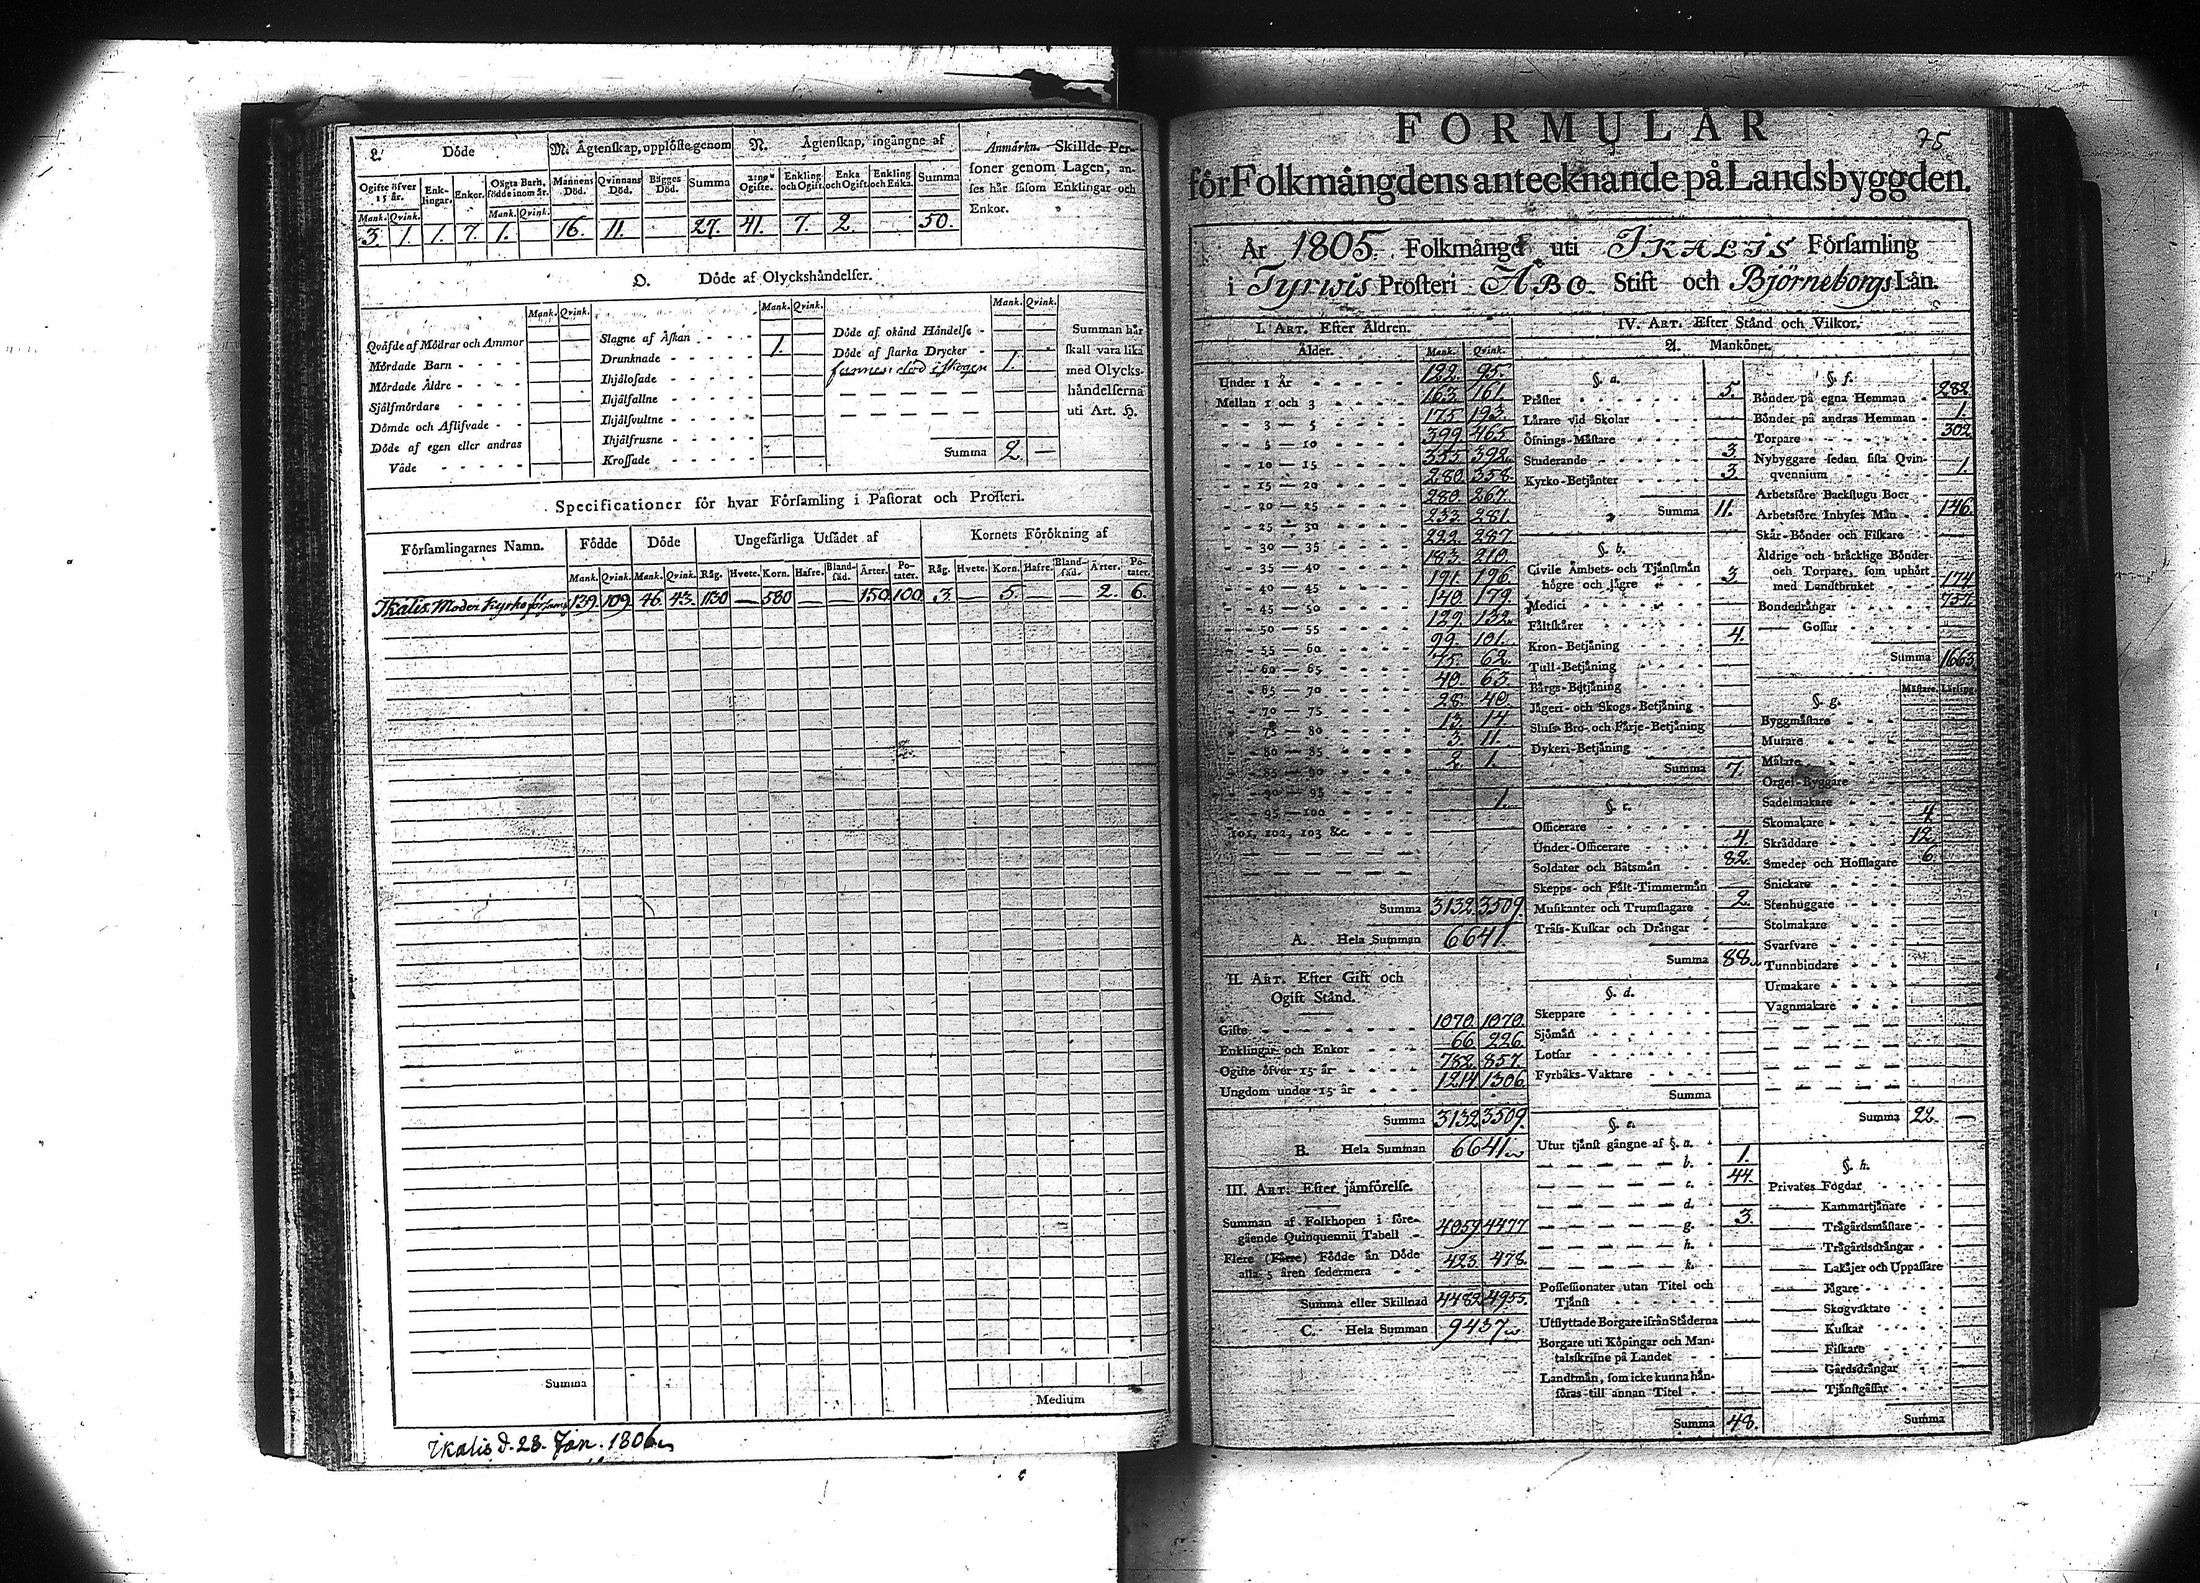 L. Döde
M. Ägtenskap, upplöste genom
N. Ägtenskap, ingångne af
Anmärkn. Skillde Personer
soner genom Lagen, an-
ses här såsom Enklingar och
Enkor.
Ogifte öfver 15 år. Enklingar. Enkor. Oägta Barn, födde inom år. Mannens Död. Qvinnans Död. Bägges Död. Summa 2:ne Ogifte. Enkling och Ogift. Enka och Ogift. Enkling och Enka. Summa
Mank. Qvink. Mank. Qvink.
3. 1. 1. 7. 1. 16. 11. 27. 41. 7. 2. 50.
O. Döde af Olyckshändelser.
Mank. Qvink. Mank. Qvink. Mank. Qvink.
Qväfde af Mödrar och Ammor
Mördade Barn
Mördade Äldre
Själfmördare
Dömde och Aflifvade
Döde af egen eller andras
Våde
Slagne af Åskan
Drunknade 1.
Ihjälosade
Ihjälfallne
Ihjälsvultne
Ihjälfrusne
Krossade
Döde af okänd Händelse
Döde af starka Drycker
funnen död i skogen 1.
Summa 2. —
Summan här
skall vara lika
med Olycks-
händelserna
uti Art. H.
Specificationer för hvar Församling i Pastorat och Prosteri.
Församlingarnes Namn. Födde Döde Ungefärliga Utsädet af Kornets Förökning af
Mank. Qvink. Mank. Qvink. Råg. Hvete. Korn. Hafre. Blandsäd. Ärter. Potater. Råg. Hvete. Korn. Hafre. Blandsäd. Ärter. Potater.
Ikalis Moder Kyrko församl. 139. 109. 46. 43. 1130 — 580 — — 150 100 3. — 5. — — 2. 6.
Summa
Medium
Ikalis d. 28. Jan. 1806.
75
FORMULÄR
för Folkmängdens antecknande på Landsbyggden.
År 1805. Folkmängd uti IKALIS Församling
i Tyrwis Prosteri ÅBO Stift och Björneborgs Län.
I. ART. Efter Åldren.
Ålder. Mank. Qvink.
Under 1 År 122. 95.
Mellan 1 och 3 163. 161.
3 — 5 175 193.
5 — 10 399. 465.
10 — 15 355 392.
15 — 20 280. 358.
20 — 25 280. 267.
25 — 30 233. 281.
30 — 35 222. 287.
35 — 40 183. 210.
40 — 45 191. 196.
45 — 50 140. 179.
50 — 55 129. 132.
55 — 60 99. 101.
60 — 65 75. 62.
65 — 70 40. 63.
70 — 75 28. 40.
75 — 80 13. 14.
80 — 85 3. 11.
85 — 90 2. 1.
90 — 95
95 — 100 1.
101, 102, 103 &c.
Summa 3132. 3509.
A. Hela Summan 6641.
II. ART. Efter Gift och
Ogift Stånd.
Gifte 1070. 1070.
Enklingar och Enkor 66. 226.
Ogifte öfver 15 år 782. 857.
Ungdom under 15 år 1214. 1306.
Summa 3132. 3509.
B. Hela Summan 6641.
III. ART. Efter jämförelse.
Summan af Folkhopen i före-
gående Quinquennii Tabell 4059. 4477
Flere (Färre) Födde än Döde
alla 5 åren sedermera 423. 478.
Summa eller Skillnad 4482. 4955.
C. Hela Summan 9437.
IV. ART. Efter Stånd och Vilkor.
A. Mankönet.
§. a.
Präster 5.
Lärare vid Skolar
Öfnings-Mästare
Studerande 3.
Kyrko-Betjänter 3
Summa 11.
§. b.
Civile Ämbets- och Tjänstmän
högre och lägre 3
Medici
Fältskärer
Kron-Betjäning 4.
Tull-Betjäning
Bärgs-Betjäning
Jägeri- och Skogs-Betjäning
Sluss- Bro- och Färje-Betjäning
Dykeri-Betjäning
Summa 7.
§. c.
Officerare
Under-Officerare 4.
Soldater och Båtsmän 82.
Skepps- och Fält-Timmermän
Musikanter och Trumslagare 2.
Träss-Kuskar och Drängar
Summa 88.
§. d.
Skeppare
Sjömän
Lotsar
Fyrbåks-Vaktare
Summa
§. e.
Utur tjänst gångne af §. a.
b. 1.
c. 44.
d.
g. 3.
h.
k.
Possessionater utan Titel och
Tjänst
Utflyttade Borgare ifrån Städerna
Borgare uti Köpingar och Man-
talsskrifne på Landet
Landtmän, som icke kunna hän-
föras till annan Titel
Summa 48.
§. f.
Bönder på egna Hemman 282.
Bönder på andras Hemman 1.
Torpare 302
Nybyggare sedan sista Qvin-
qvennium 1.
Arbetsföre Backstugu Boer
Arbetsföre Inhyses Män 146.
Skär-Bönder och Fiskare
Äldrige och bräcklige Bönder
och Torpare, som uphört
med Landtbruket 174
Bondedrängar 757.
— Gossar
Summa 1663.
§. g. Mästare. Lärling.
Byggmästare
Murare
Målare
Orgel-Byggare
Sadelmakare
Skomakare 4.
Skräddare 12.
Smeder och Hofslagare 6.
Snickare
Stenhuggare
Stolmakare
Svarfvare
Tunnbindare
Urmakare
Vagnmakare
Summa 22. —
§. h.
Privates Fogdar
— Kammartjänare
— Trägårdsmästare
— Trägårdsdrängar
— Lakäjer och Uppassare
— Jägare
— Skogvaktare
— Kuskar
— Fiskare
— Gårdsdrängar
— Tjänstgåssar
Summa